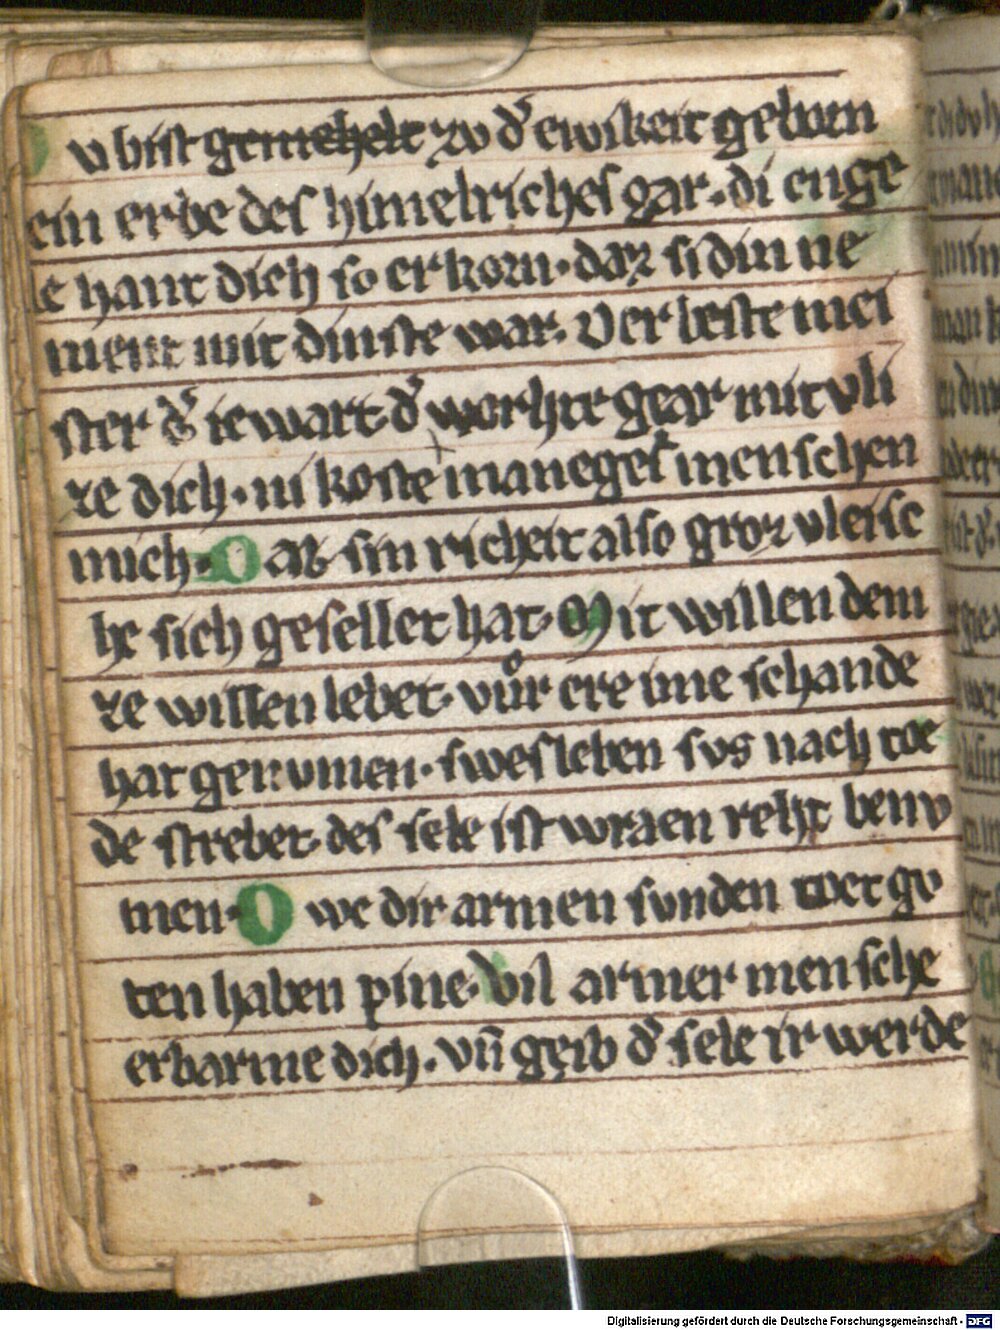 v bist gemehelt zv dˀ ewikeit geborn
ein erbe des himelriches gar · di enge
le hant dich so erkorn · daz si din ne
ment mit dinste war · Der beste mei
ster dˀ ie wart · dˀ worhte gar mit vli
ze dich · ni koste maneger menschen
mich · Daz sin richeit also groz vleisc
he sich gesellet hat · Mit willen dem
ze willen lebet · vuͦr ere ime schande
hat genvmen · swes leben svs nach toe
de strebet · des sele ist vraen reht benv
men · O we dir armen svnden
ten haben pine · vil armer mensche
erbarme dich · vn̄ geib dˀ sele ir werde
Digitalisierung gefördert durch die Deutsche Forschungsgemeinschaft - DFG